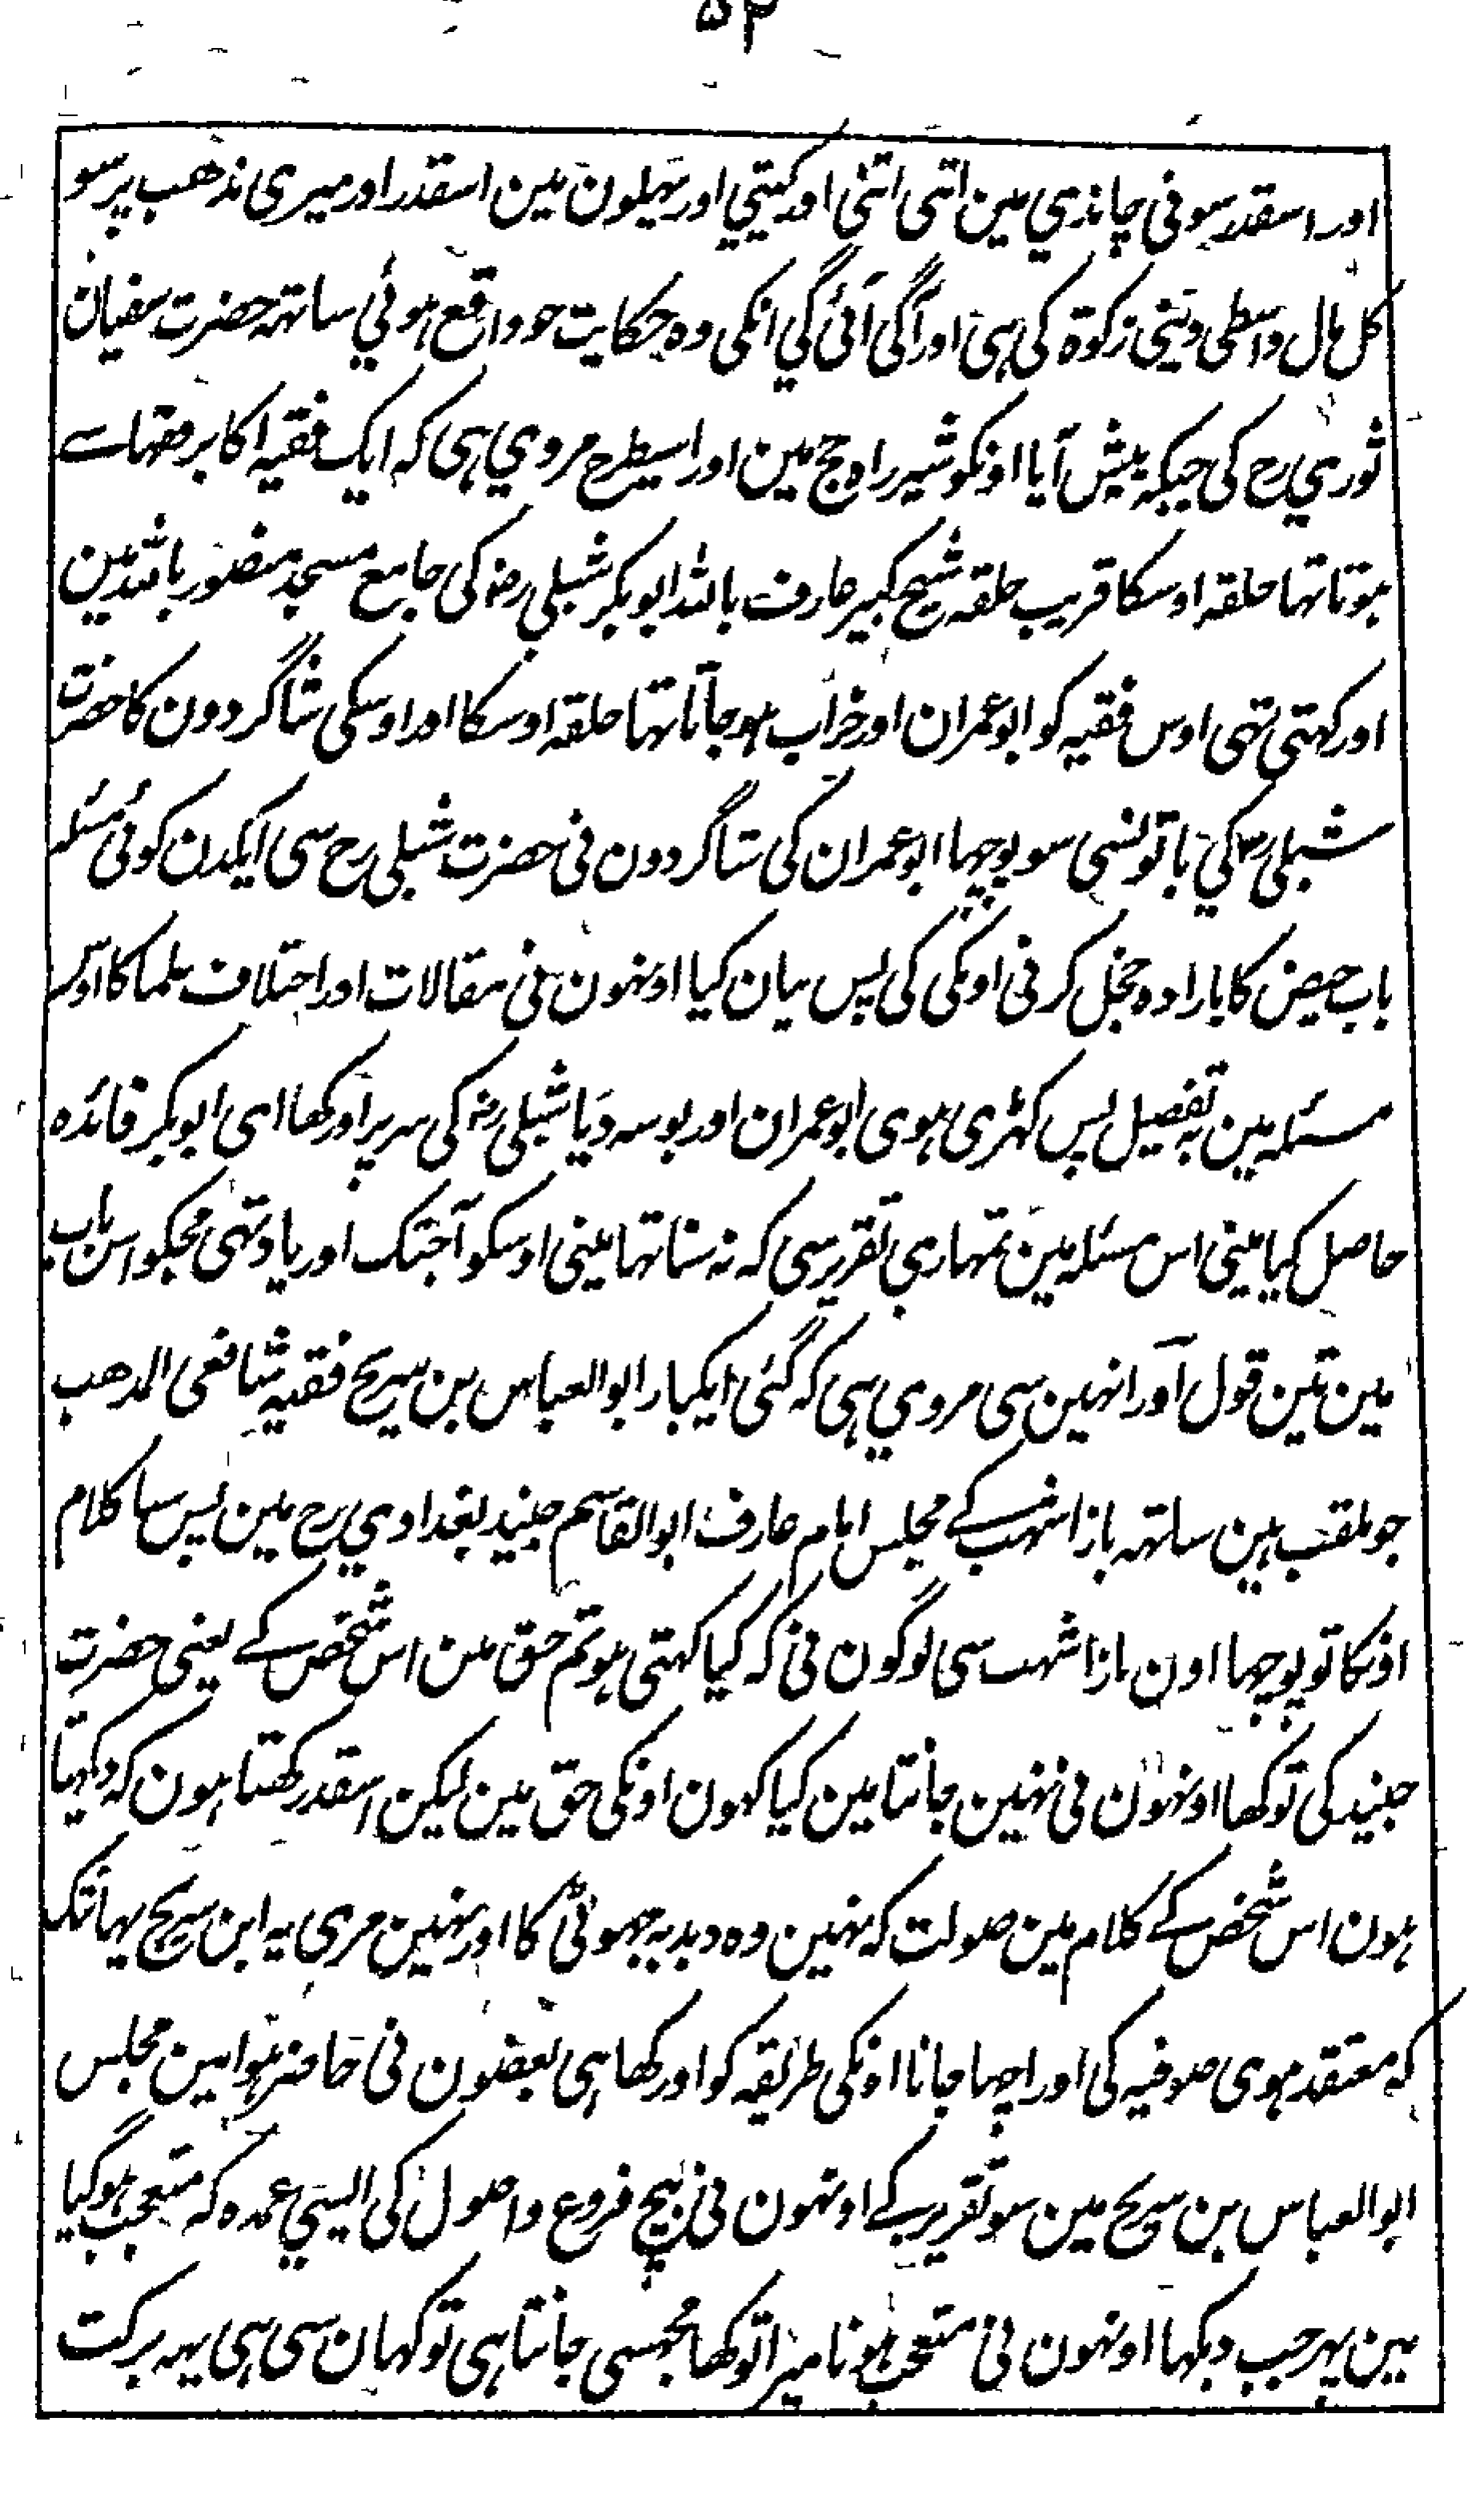 ۵۴
اور اسقدر سونی چاندي مین اتنی اتنی اور کہیتي اور پہلون مین اسقدر اور میری مذھب پر سو
کل مال واسطی دینی زکوۃ کی ہی اور آگی آئی گي انکی وہ حکایت جو واقع ہوئي ساتہہ حضرت سفیان
ثوري رح کی جبکہ پیش آیا اونکو شیر راہ حج مین اور اسیطرح مروي ہی کہ ایک فقیہ اکابر فقہا سے
ہوتا تہا حلقہ اوسکا قریب حلقہ شیخ کبیر عارف باللہ ابو بکر شبلی رضہ کی جامع مسجد منصور باللہ مین
اور کہتی تہی اوس فقیہ کو ابو عمران اور خراب ہو جاتا تہا حلقہ اوسکا اور اوسکی شاگردون کا حضرت
شبلی رح کي باتونسی سو پوچہا ابو عمران کی شاگردون نی حضرت شبلی رح سی ایکدن کوئی مسئلہ
باب حیض کا بارادہ خجل کرنی اونکی کی پس بیان کیا اونہون نی مقالات اور اختلاف علما کا اوس
مسئلہ مین بہ تفصیل پس کہڑی ہوی ابو عمران اور بوسہ دیا شبلی رضہ کی سر پر اور کھا ای ابو بکر فائدہ
حاصل کیا مینی اس مسئلہ مین تمہاري تقریر سی کہ نہ سنا تہا مینی اوسکو آجتک اور یاد تہی مجکو اس باب
مین تین قول اور انہین سی مروي ہی کہ گئی ایکبار ابو العباس بن سریج فقیہ شافعی المذھب
جو ملقب ہین ساتہہ باز اشہب کے مجلس امام عارف ابو القاسم جنید بغدادي رح مین پس سنا کلام
اونکا تو پوچہا اون باز اشہب سی لوگون نی کہ کیا کہتی ہو تم حق مین اس شخص کے یعنی حضرت
جنید کی تو کھا اونہون نی نہین جانتا مین کیا کہون اونکی حق مین لیکن اسقدر کھتا ہون کہ دیکہتا
ہون اس شخص کے کلام مین صولت کہ نہین وہ دبدبہ جہوٹی کا اور نہین مری یہ ابن سریج یہانتک
کہ معتقد ہوی صوفیہ کی اور اچہا جانا اونکی طریقہ کو اور کھا ہی بعضون نی حاضر ہوا مین مجلس
ابو العباس بن سریج مین سو تقریر کے اونہون نی بیچ فروع و اصول کی ایسي عمدہ کہ متعجب ہو گیا
مین پہر جب دیکہا اونہون نی متعجب ہونا میرا تو کھا مجہسی جانتا ہی تو کہان سی ہی یہہ برکت